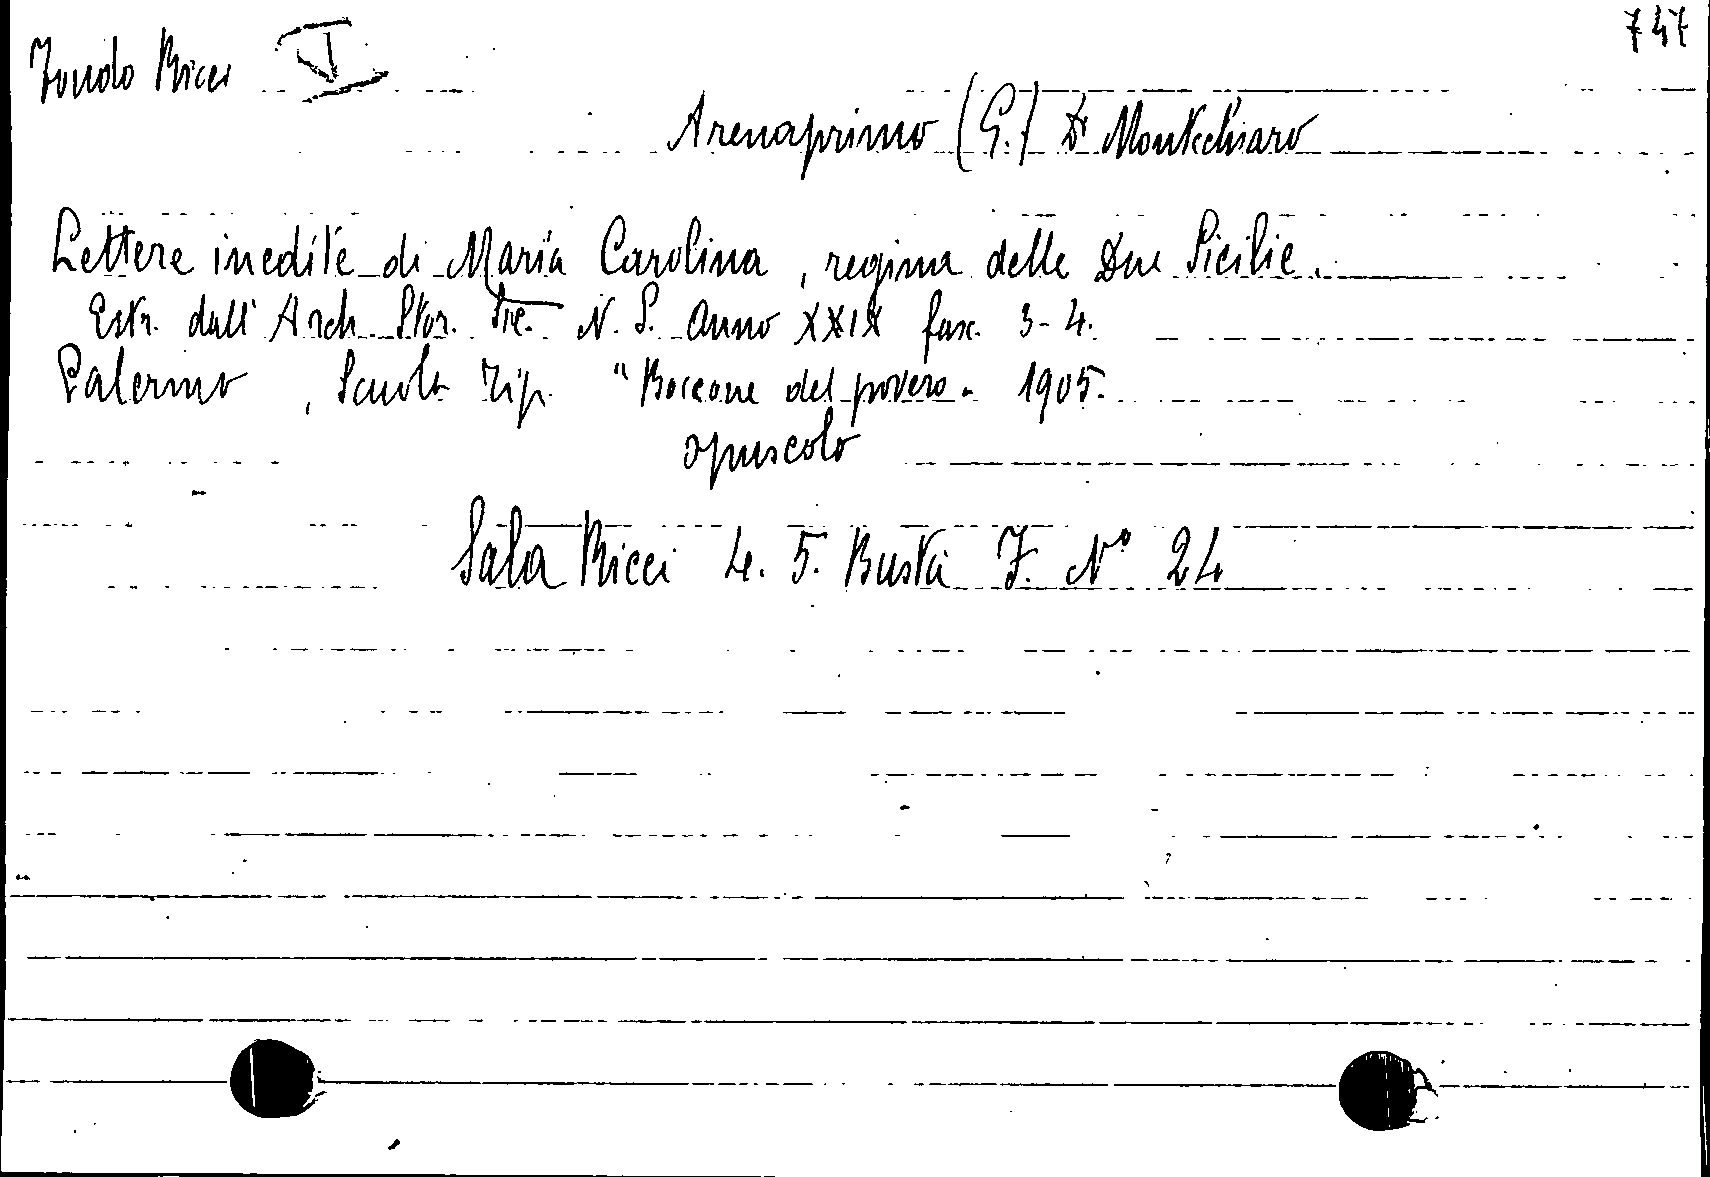 747
Fondo Ricci V
Arenaprimo (G.) Di Montechiaro
Lettere inedite di Maria Carolina, regina delle Due Sicilie.
Estr. dall' Arch. Stor. Sic. N. S. Anno XXIX fasc. 3-4.
Palermo, Scuola Tip. "Boccone del povero" 1905.
opuscolo
Sala Ricci 4. 5. Busta F. N° 24